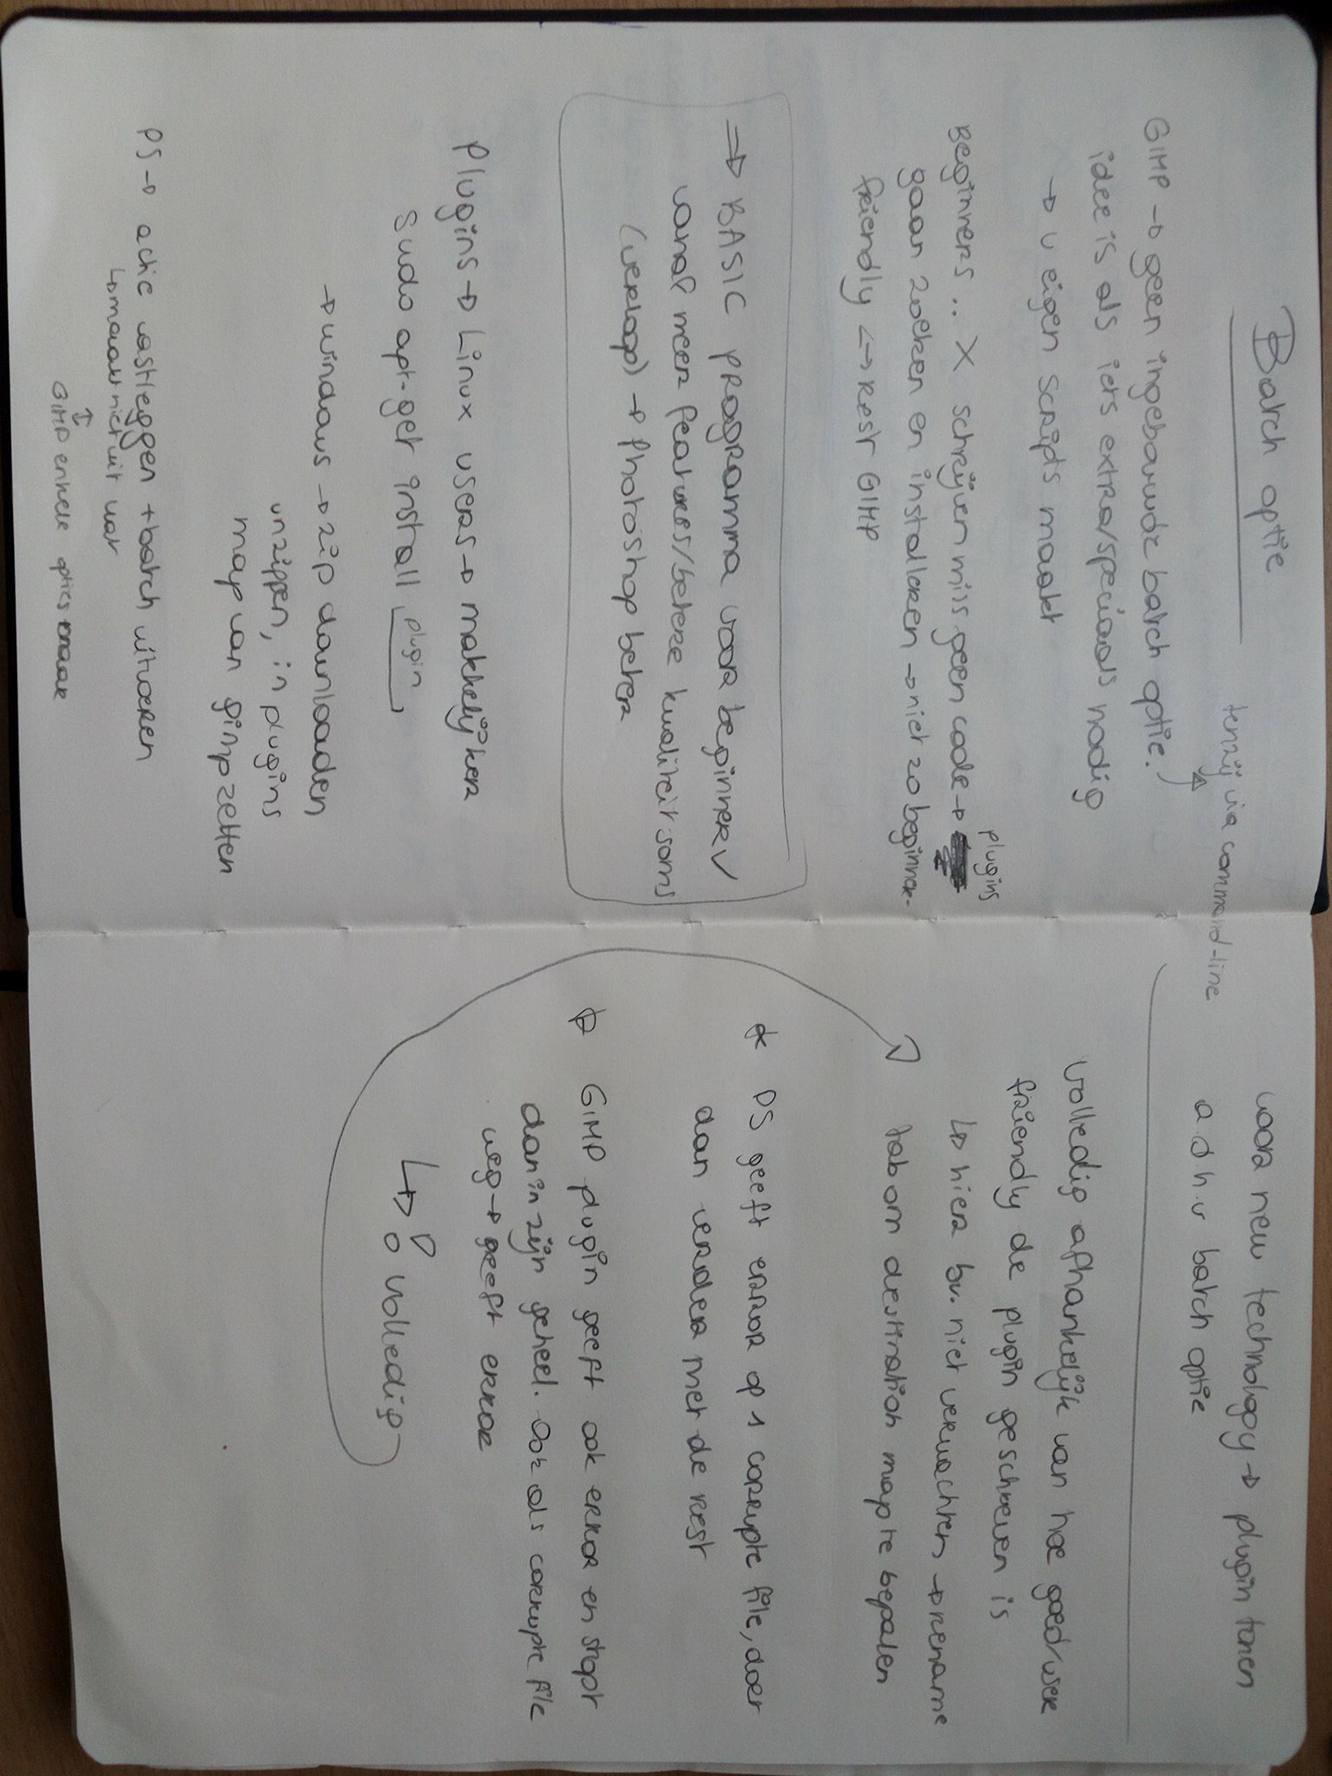 Batch optie
tenzij via command-line
GIMP → geen ingebouwde batch optie.
idee is als iets extra/speciaals nodig
→ u eigen scripts maakt
Beginners .. X schrijven miss geen code → plugins
gaan zoeken en installeren → niet zo beginner-
friendly <-> Rest GIMP
⇒ BASIC programma voor beginner ✓
vanaf meer features/betere kwaliteit soms
(verloop) → Photoshop beter
Plugins → Linux users → makkelijker
sudo apt-get install plugin
→ windows → zip downloaden
unzippen, in plugins
map van gimp zetten
PS → actie vastleggen + batch uitvoeren
↳ maakt niet uit wat
↕
GIMP enkele opties maar
voor new technology → plugin tonen
a d h v batch optie
volledig afhankelijk van hoe goed/user
friendly de plugin geschreven is
↳ hier bv. niet verwachten → rename
tab om destination map te bepalen
* PS geeft error op 1 corrupte file, doet
dan verder met de rest
GIMP plugin geeft ook error en stopt
dan in zijn geheel. Ook als corrupte file
weg → geeft error
↳ ! volledig